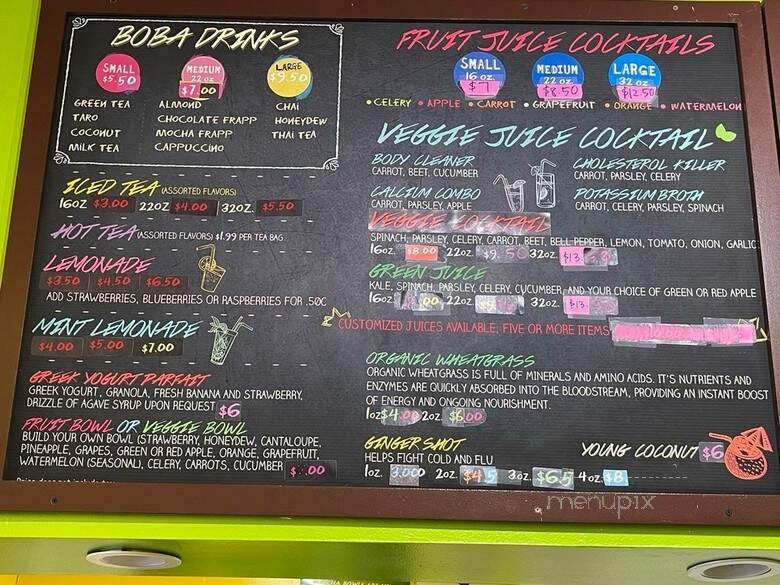 BOBA DRINKS
SMALL
$5.50
MEDIUM
22 oz.
$7.00
LARGE
$9.50
GREEN TEA
TARO
COCONUT
MILK TEA
ALMOND
CHOCOLATE FRAPP
MOCHA FRAPP
CAPPUCCINO
CHAI
HONEYDEW
THAI TEA
ICED TEA (ASSORTED FLAVORS)
16OZ $3.00 22OZ $4.00 32OZ. $5.50
HOT TEA (ASSORTED FLAVORS) $1.99 PER TEA BAG
LEMONADE
$3.50 $4.50 $6.50
ADD STRAWBERRIES, BLUEBERRIES OR RASPBERRIES FOR .50C
MINT LEMONADE
$4.00 $5.00 $7.00
GREEK YOGURT PARFAIT
GREEK YOGURT, GRANOLA, FRESH BANANA AND STRAWBERRY,
DRIZZLE OF AGAVE SYRUP UPON REQUEST $6
FRUIT BOWL OR VEGGIE BOWL
BUILD YOUR OWN BOWL (STRAWBERRY, HONEYDEW, CANTALOUPE,
PINEAPPLE, GRAPES, GREEN OR RED APPLE, ORANGE, GRAPEFRUIT,
WATERMELON (SEASONAL), CELERY, CARROTS, CUCUMBER
FRUIT JUICE COCKTAILS
SMALL
16 oz.
$7
MEDIUM
22 oz.
$8.50
LARGE
32 oz.
$12.50
• CELERY • APPLE • CARROT • GRAPEFRUIT • ORANGE • WATERMELON
VEGGIE JUICE COCKTAIL
BODY CLEANER
CARROT, BEET, CUCUMBER
CHOLESTEROL KILLER
CARROT, PARSLEY, CELERY
CALCIUM COMBO
CARROT, PARSLEY, APPLE
POTASSIUM BROTH
CARROT, CELERY, PARSLEY, SPINACH
VEGGIE COCKTAIL
SPINACH, PARSLEY, CELERY, CARROT, BEET, BELL PEPPER, LEMON, TOMATO, ONION, GARLIC
16oz. $8.00 22oz. $9.50 32oz. $13
GREEN JUICE
KALE, SPINACH, PARSLEY, CELERY, CUCUMBER, AND YOUR CHOICE OF GREEN OR RED APPLE
16oz. 22oz. 32oz. $13
CUSTOMIZED JUICES AVAILABLE; FIVE OR MORE ITEMS
ORGANIC WHEATGRASS
ORGANIC WHEATGRASS IS FULL OF MINERALS AND AMINO ACIDS. IT'S NUTRIENTS AND
ENZYMES ARE QUICKLY ABSORBED INTO THE BLOODSTREAM, PROVIDING AN INSTANT BOOST
OF ENERGY AND ONGOING NOURISHMENT.
1oz $4.00 2oz $6.00
GINGER SHOT
HELPS FIGHT COLD AND FLU
1oz. 2oz. $4.5 3oz. $6.5 4oz. $8
YOUNG COCONUT $6
menupix